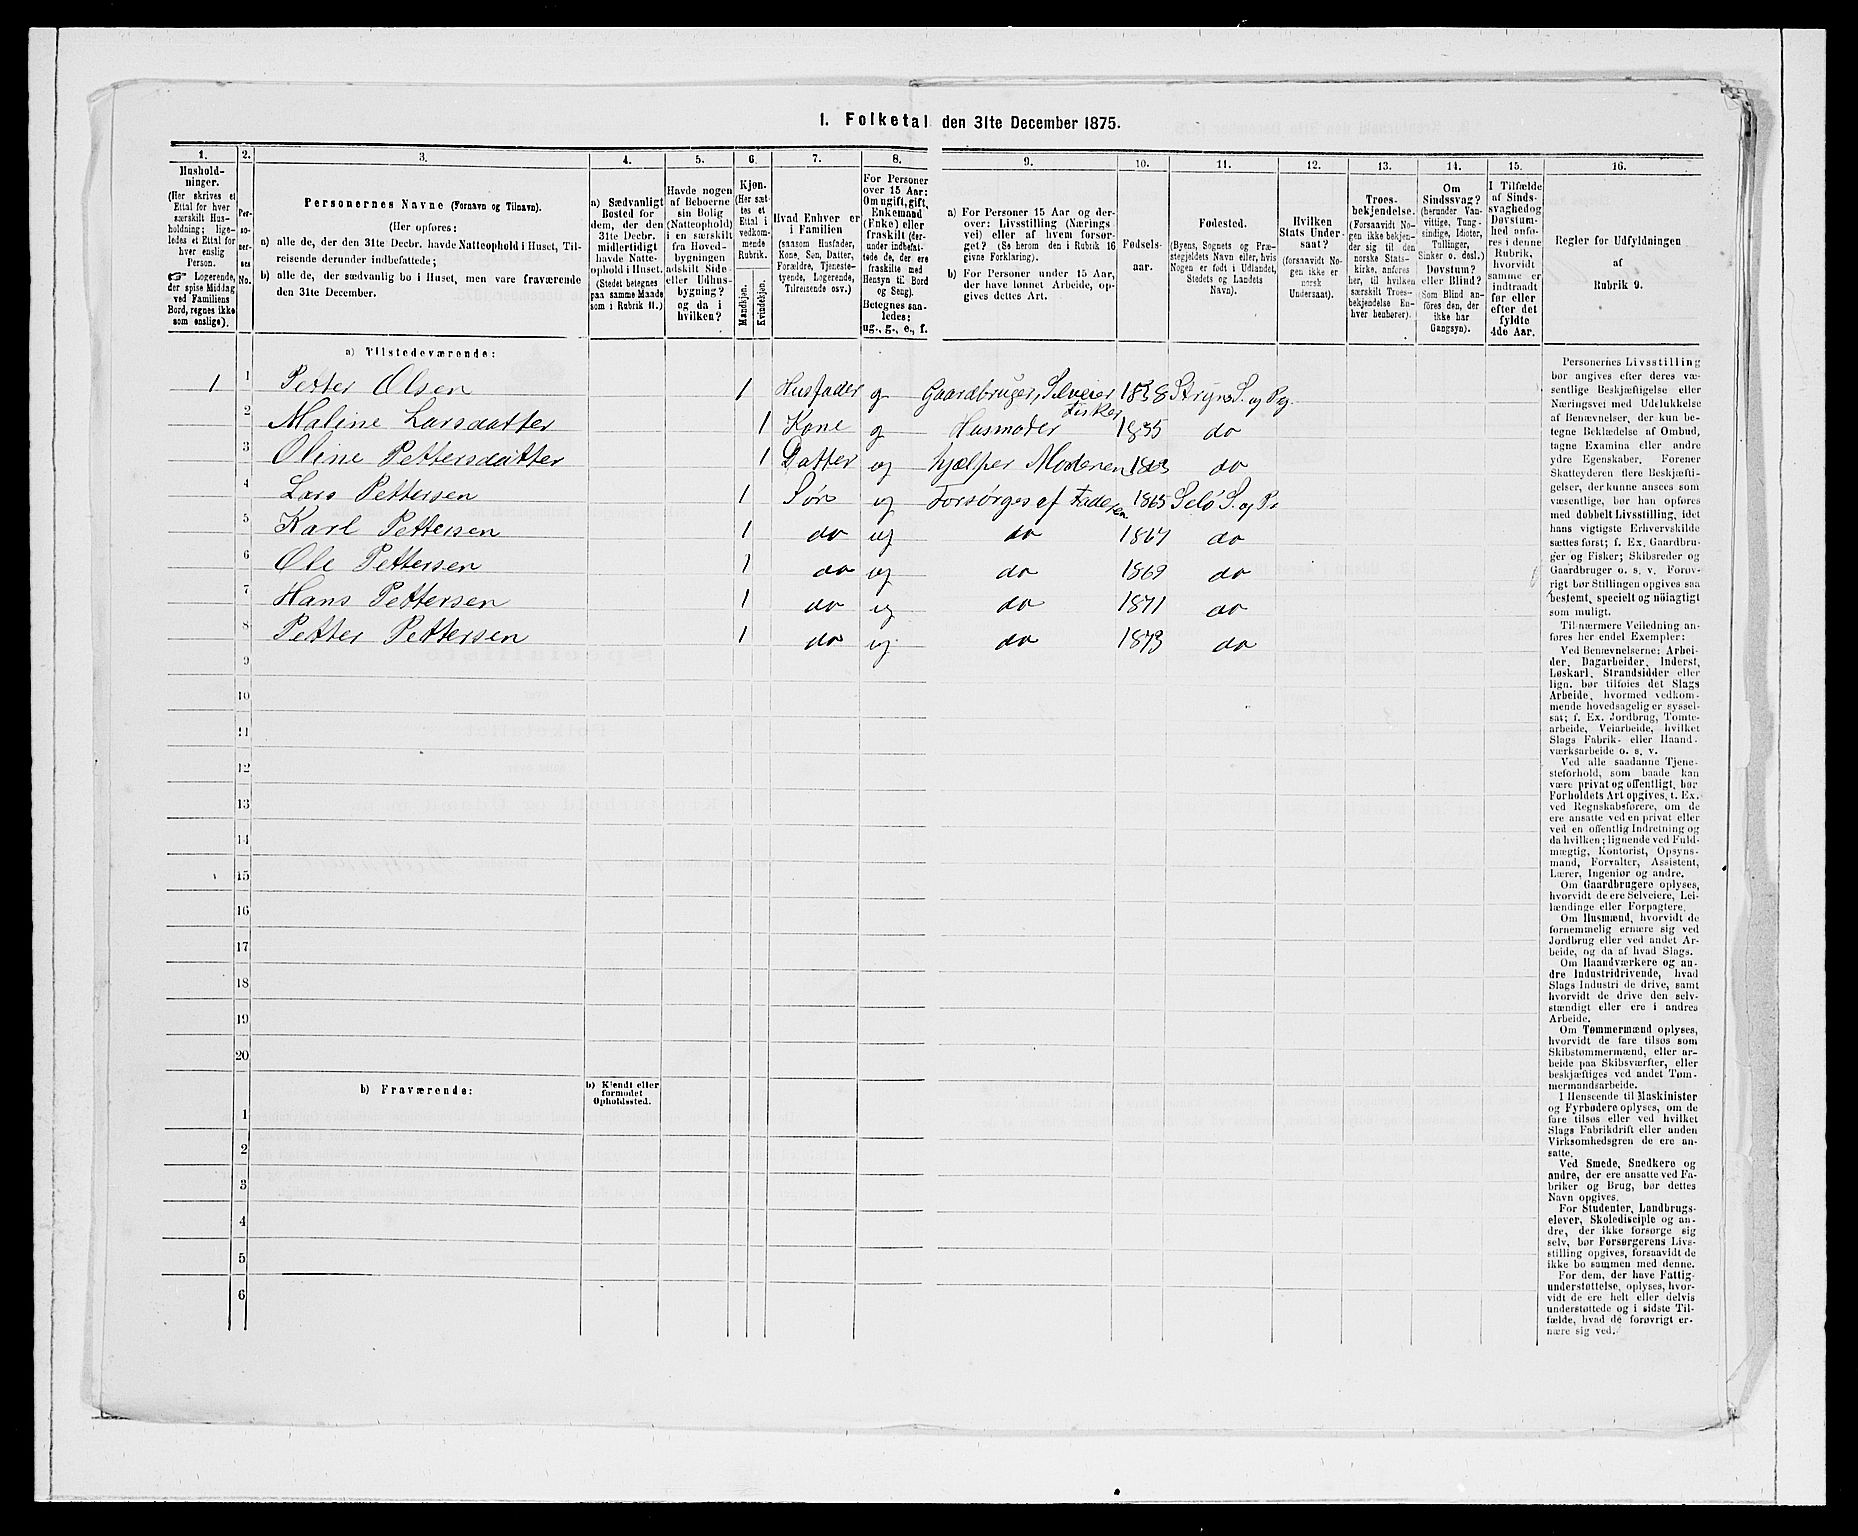 1. Folketal den 31te December 1875.
1. 2. 3. 4. 5. 6. 7. 8. 9. 10. 11. 12. 13. 14. 15. 16.
Hushold-
ninger.
(Her skrives et
Ettal for hver
særskilt Hus-
holdning; lige-
ledes et Ettal for
hver enslig
Person.
☞ Logerende,
der spise Middag
ved Familiens
Bord, regnes ikke
som enslige).
Per-
so-
ner-
nes
No.
Personernes Navne (Fornavn og Tilnavn).
(Her opføres:
a) alle de, der den 31te Decbr. havde Natteophold i Huset, Til-
reisende derunder indbefattede;
b) alle de, der sædvanlig bo i Huset, men vare fraværende
den 31te December.
a) Sædvanligt
Bosted for
dem, der den
31te Decbr.
midlertidigt
havde Natte-
ophold i Huset.
(Stedet betegnes
paa samme Maade
som i Rubrik 11.)
Havde nogen
af Beboerne
sin Bolig
(Natteophold)
i en særskilt
fra Hoved-
bygningen
adskilt Side-
eller Udhus-
bygning?
og da i
hvilken?
Kjøn.
(Her sæt-
tes et
Ettal i
vedkom-
mende
Rubrik.
Mandkjøn.
Kvindekjøn.
Hvad Enhver er
i Familien
(saasom Husfader,
Kone, Søn, Datter,
Forældre, Tjeneste-
tyende, Logerende,
Tilreisende osv.)
For Personer
over 15 Aar:
Om ugift, gift,
Enkemand
(Enke) eller
fraskilt (der-
under indbefat-
tede de, der ere
fraskilte med
Hensyn til Bord
og Seng).
Betegnes saa-
ledes:
ug., g., e., f.
a) For Personer 15 Aar og der-
over: Livsstilling (Nærings-
vei) eller af hvem forsør-
get? (Se herom den i Rubrik 16
givne Forklaring).
b) For Personer under 15 Aar,
der have lønnet Arbeide, op-
gives dettes Art.
Fødsels-
aar.
Fødested.
(Byens, Sognets og Præ-
stegjeldets Navn, eller, hvis
Nogen er født i Udlandet,
Stedets og Landets
Navn).
Hvilken
Stats Under-
saat?
(forsaavidt No-
gen ikke er
norsk
Undersaat).
Troes-
bekjendelse.
(Forsaavidt No-
gen ikke bekjen-
der sig til den
norske Stats-
kirke, anføres
her, til hvilken
særskilt Troes-
bekjendelse En-
hver henhører).
Om
Sindssvag?
(herunder Van-
vittige, Tung-
sindige, Idioter,
Tullinger,
Sinker o. desl.)
Døvstum?
eller Blind?
(Som Blind an-
føres den, der
ikke har
Gangsyn).
I Tilfælde
af Sinds-
svaghed og
Døvstum-
hed anfø-
res i denne
Rubrik,
hvorvidt
samme er
indtraadt
før eller
efter det
fyldte
4de Aar.
Regler for Udfyldningen
af
Rubrik 9.
a) Tilstedeværende:
1 1 Petter Olsen 1 Husfader g Gaardbruger, Selveier Fisker 1838 Stryns S. og Pg.
2 Maline Larsdatter 1 Kone g Husmoder 1835 do
3 Oline Pettersdatter 1 Datter ug hjælper Moderen 1863 do
4 Lars Pettersen 1 Søn ug Forsørges af Faderen 1865 Selö S. og Pr
5 Karl Pettersen 1 do ug do 1867 do
6 Ole Pettersen 1 do ug do 1869 do
7 Hans Pettersen 1 do ug do 1871 do
8 Petter Pettersen 1 do ug do 1873 do
9
10
11
12
13
14
15
16
17
18
19
20
b) Fraværende:
b) Kjendt eller
formodet
Opholdssted.
1
2
3
4
5
6
Personernes Livsstilling
bør angives efter deres væ-
sentlige Beskjæftigelse eller
Næringsvei med Udelukkelse
af Benævnelser, der kun be-
tegne Beklædelse af Ombud,
tagne Examina eller andre
ydre Egenskaber. Forener
Skatteyderen flere Beskjæfti-
gelser, der kunne ansees som
væsentlige, bør han opføres
med dobbelt Livsstilling, idet
hans vigtigste Erhvervskilde
sættes først; f. Ex. Gaardbru-
ger og Fisker; Skibsreder og
Gaardbruger o. s. v. Forøv-
rigt bør Stillingen opgives saa
bestemt, specielt og nöiagtigt
som muligt.
Til nærmere Veiledning an-
føres her endel Exempler:
Ved Benævnelserne: Arbei-
der, Dagarbeider, Inderst,
Løskarl, Strandsidder eller
lign. bør tilføies det Slags
Arbeide, hvormed vedkom-
mende hovedsagelig er syssel-
sat; f. Ex. Jordbrug, Tomte-
arbeide, Veiarbeide, hvilket
Slags Fabrik- eller Haand-
værksarbeide o. s. v.
Ved alle saadanne Tjene-
steforhold, som baade kan
være privat og offentligt, bør
Forholdets Art opgives, t. Ex.
ved Regnskabsførere, om de
ere ansatte ved en privat eller
ved en offentlig Indretning og
da hvilken; lignende ved Fuld-
mægtig, Kontorist, Opsyns-
mand, Forvalter, Assistent,
Lærer, Ingeniør og andre.
Om Gaardbrugere oplyses,
hvorvidt de ere Selveiere, Lei-
lændinge eller Forpagtere.
Om Husmænd, hvorvidt de
fornemmelig ernære sig ved
Jordbrug eller ved andet Ar-
beide, og da af hvad Slags.
Om Haandværkere og an-
dre Industridrivende, hvad
Slags Industri de drive, samt
hvorvidt de drive den selv-
stændigt eller ere i andres
Arbeide.
Om Tømmermænd oplyses,
hvorvidt de fare tilsøs som
Skibstømmermænd, eller ar-
beide paa Skibsværfter, eller
beskjæftiges ved andet Tøm-
mermandsarbeide.
I Henseende til Maskinister
og Fyrbødere oplyses, om de
fare tilsøs eller ved hvilket
Slags Fabrikdrift eller anden
Virksomhedsgren de ere an-
satte.
Ved Smede, Snedkere og
andre, der ere ansatte ved Fa-
briker og Brug, bør dettes
Navn opgives.
For Studenter, Landbrugs-
elever, Skoledisciple og an-
dre, der ikke forsørge sig
selv, bør Forsørgerens Livs-
stilling opgives, forsaavidt de
ikke bo sammen med denne.
For dem, der have Fattig-
understøttelse, oplyses, hvor-
vidt de ere helt eller delvis
understøttede og i sidste Til-
fælde, hvad de forøvrigt er-
nære sig ved.